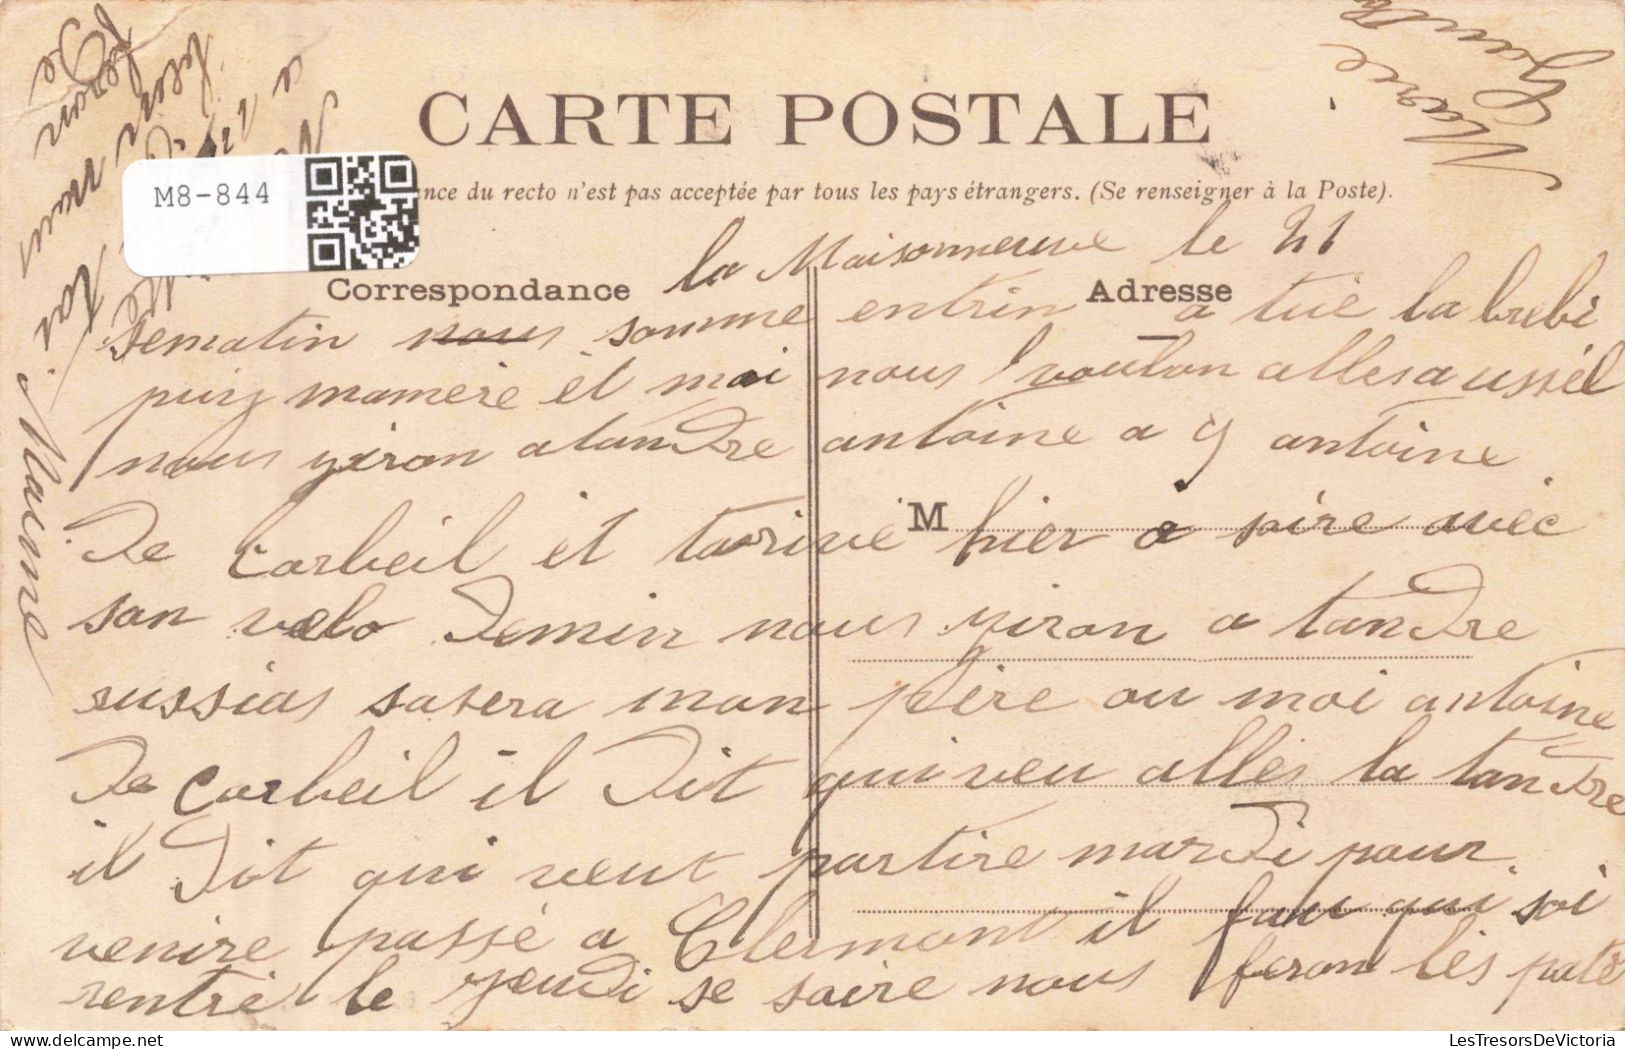 CARTE POSTALE
M8-844
nce du recto n'est pas acceptée par tous les pays étrangers. (Se renseigner à la Poste).
la Maisonneuve le 21
Correspondance
Adresse
sematin nous somme entrin a tué la brebi
puiz mamère et moi nous voulon alles aussél
nous yiron atandre antoine a 9 antoine
De Corbeil et tarrivé hier a soire avec
M
son velo Demin nous yiron a tandre
russias sasera mon père ou moi antoine
De Corbeil il Dit qui veu alles la tandre
il Dit qui veut partire mardi pour
venire passé a Clermont il fau qui soi
rentré le jeudi se soire nous feron les paté
Marie